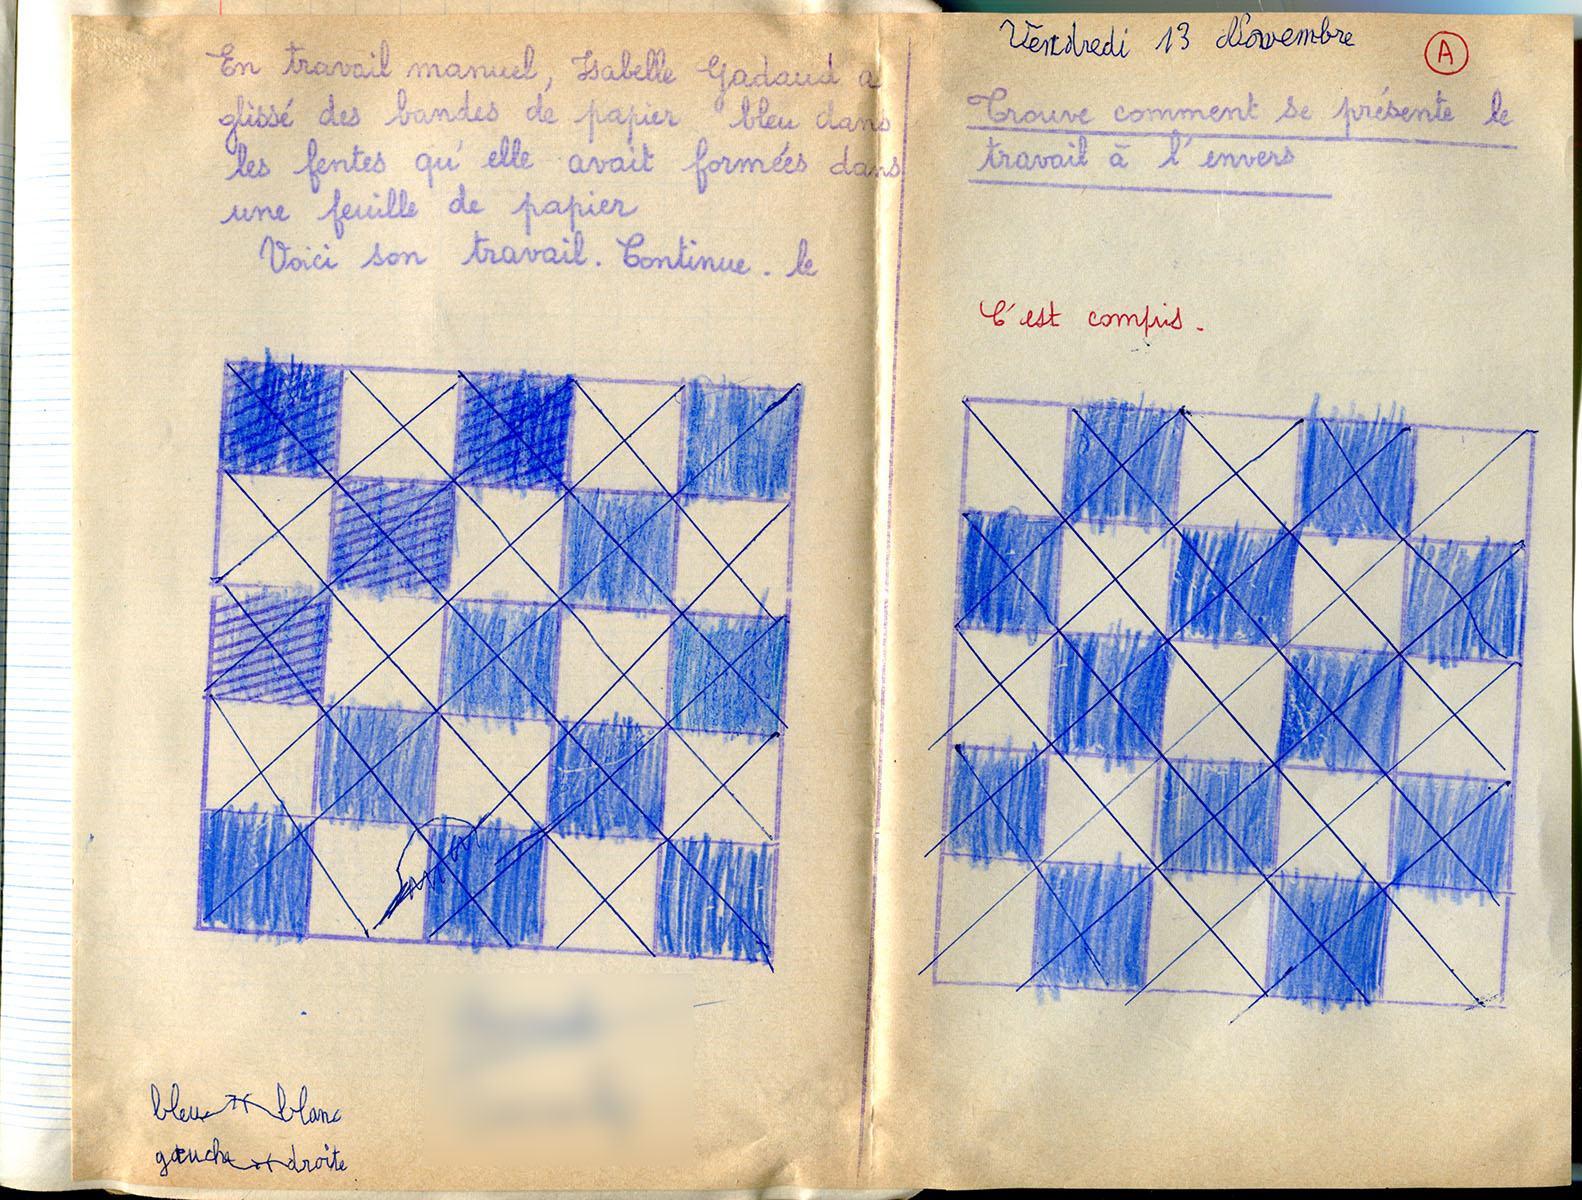 En travail manuel, Isabelle Gadaud a
glissé des bandes de papier bleu dans
les fentes qu'elle avait formées dans
une feuille de papier
Voici son travail. Continue. le
bleu blanc
gauche droite
Vendredi 13 Novembre
A
Trouve comment se présente le
travail à l'envers
C'est compris.